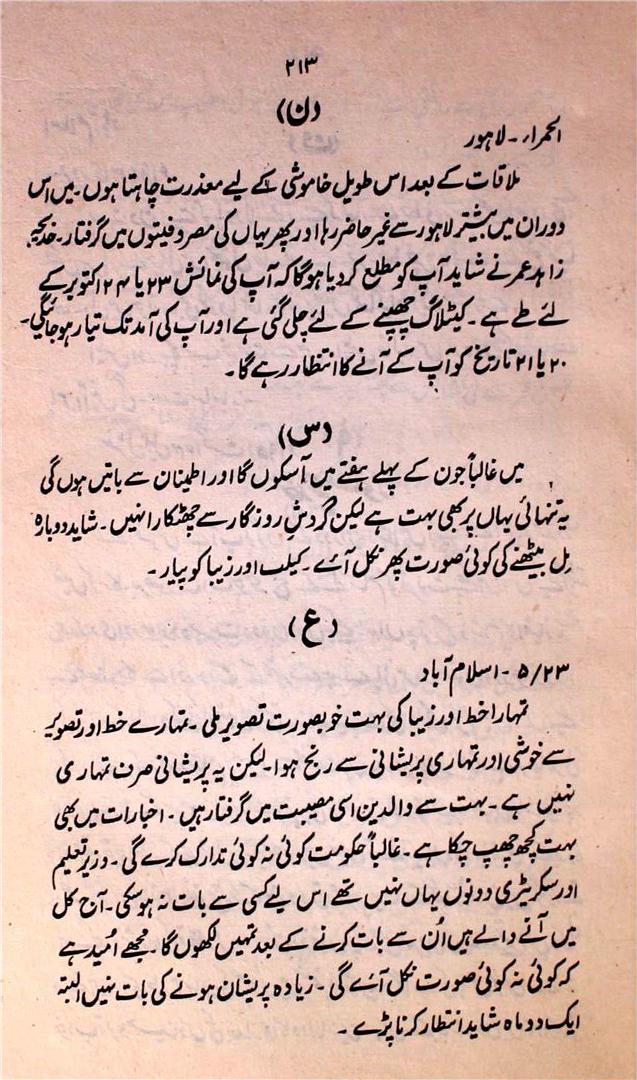 ۲۱۳
(ن)
الحمراء ۔ لاہور
ملاقات کے بعد اس طویل خاموشی کے لیے معذرت چاہتا ہوں۔ میں اس
دوران میں بیشتر لاہور سے غیر حاضر رہا اور پھر یہاں کی مصروفیتوں میں گرفتار۔ خدیجہ
زاہد عمر نے شاید آپ کو مطلع کر دیا ہوگا کہ آپ کی نمائش ۲۳ یا ۲۴ اکتوبر کے
لئے طے ہے۔ کیٹلاگ چھپنے کے لئے چلی گئی ہے اور آپ کی آمد تک تیار ہو جائیگی۔
۲۰ یا ۲۱ تاریخ کو آپ کے آنے کا انتظار رہے گا۔
(س)
میں غالباً جون کے پہلے ہفتے میں آسکوں گا اور اطمینان سے باتیں ہوں گی
یہ تنہائی یہاں پر بھی بہت ہے لیکن گردشِ روزگار سے چھٹکارا نہیں۔ شاید دوبارہ
مِل بیٹھنے کی کوئی صورت پھر نکل آئے۔ کیلب اور زیبا کو پیار۔
(ع)
۵/۲۳ ۔ اسلام آباد
تمہارا خط اور زیبا کی بہت خوبصورت تصویر ملی۔ تمہارے خط اور تصویر
سے خوشی اور تمہاری پریشانی سے رنج ہوا۔ لیکن یہ پریشانی صرف تمہاری
نہیں ہے۔ بہت سے والدین اسی مصیبت میں گرفتار ہیں۔ اخبارات میں بھی
بہت کچھ چھپ چکا ہے۔ غالباً حکومت کوئی نہ کوئی تدارک کرے گی۔ وزیرِ تعلیم
اور سکریٹری دونوں یہاں نہیں تھے اس لیے کسی سے بات نہ ہوسکی۔ آج کل
میں آنے والے ہیں اُن سے بات کرنے کے بعد تمہیں لکھوں گا۔ مجھے اُمید ہے
کہ کوئی نہ کوئی صورت نکل آئے گی۔ زیادہ پریشان ہونے کی بات نہیں البتہ
ایک دو ماہ شاید انتظار کرنا پڑے۔